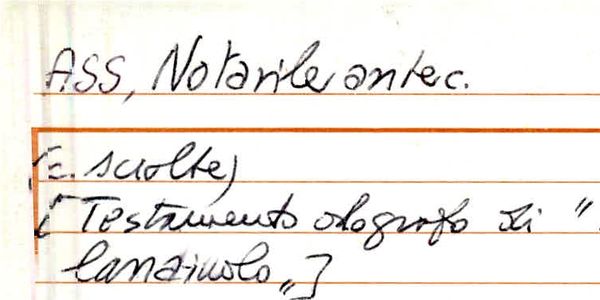 ASS, Notarile antec.
(c. sciolte)
[Testamento olografo di "
lanaiuolo"]